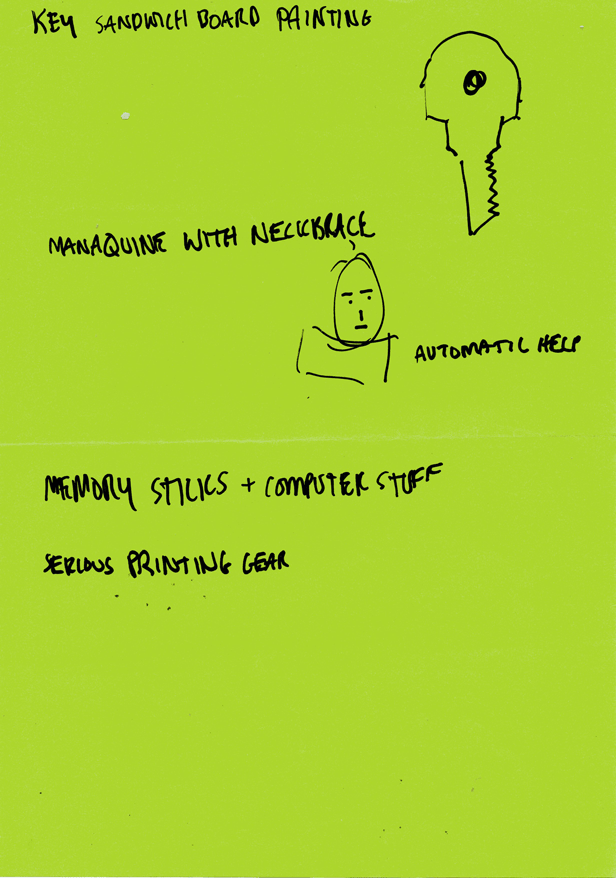 KEY SANDWICH BOARD PAINTING
MANAQUINE WITH NECKBRACE
AUTOMATIC HELP
MEMORY STICKS + COMPUTER STUFF
SERIOUS PRINTING GEAR